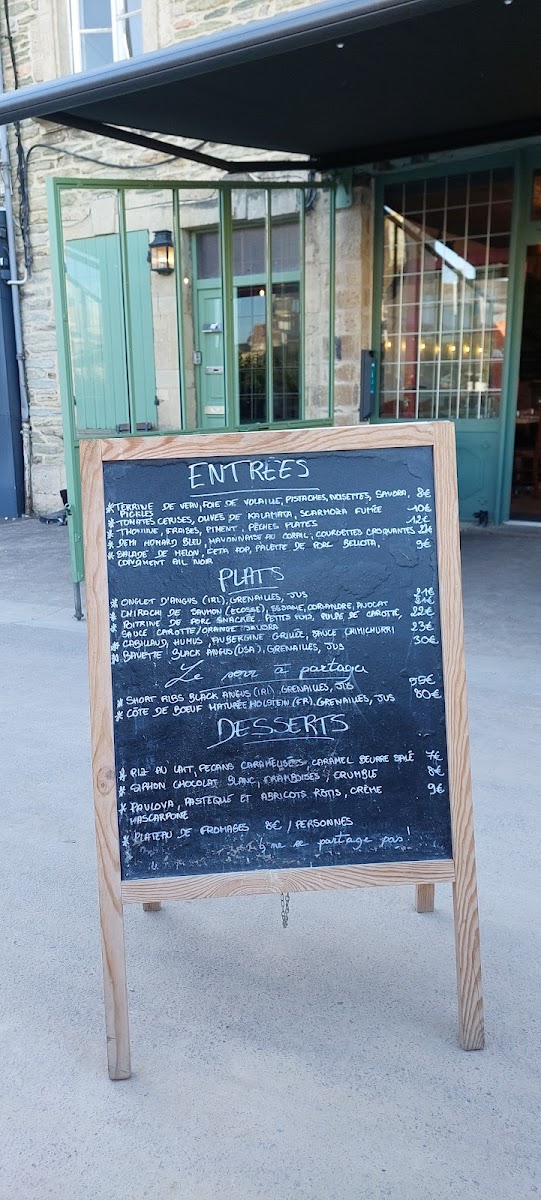 ENTRÉES
* TERRINE DE VEAU, FOIE DE VOLAILLE, PISTACHES, NOISETTES, SAVORA, 8€
PICKLES
* TOMATES CERISES, OLIVES DE KALAMATA, SCARMORZA FUMÉE 10€
* THONINE, FRAISES, PIMENT, PÊCHES PLATES 12€
* DEMI HOMARD BLEU, MAYONNAISE AU CORAIL, COURGETTES CROQUANTES
* SALADE DE MELON, FETA AOP, PALETTE DE PORC BELLOTA, 9€
CONDIMENT AIL NOIR
PLATS
* ONGLET D'ANGUS (IRL), GRENAILLES, JUS 21€
* CHIRACHI DE SAUMON (ECOSSE), SÉSAME, CORIANDRE, AVOCAT 21€
* POITRINE DE PORC SNACKÉE, PETITS POIS, PULPE DE CAROTTE, 22€
SAUCE CAROTTE/ORANGE SAVORA
* CABILLAUD, HUMUS, AUBERGINE GRILLÉE, SAUCE CHIMICHURRI 23€
* BAVETTE BLACK ANGUS (USA), GRENAILLES, JUS 30€
à partager
* SHORT RIBS BLACK ANGUS (IRL), GRENAILLES, JUS 59€
* CÔTE DE BOEUF MATURÉE HOLSTEIN (FR), GRENAILLES, JUS 80€
DESSERTS
* RIZ AU LAIT, PECANS CARAMÉLISÉES, CARAMEL BEURRE SALÉ 7€
* SIPHON CHOCOLAT BLANC, FRAMBOISES, CRUMBLE 8€
* PAVLOVA, PASTÈQUE ET ABRICOTS RÔTIS, CRÈME 9€
MASCARPONE
* PLATEAU DE FROMAGES 8€ / PERSONNES
ne se partage pas !